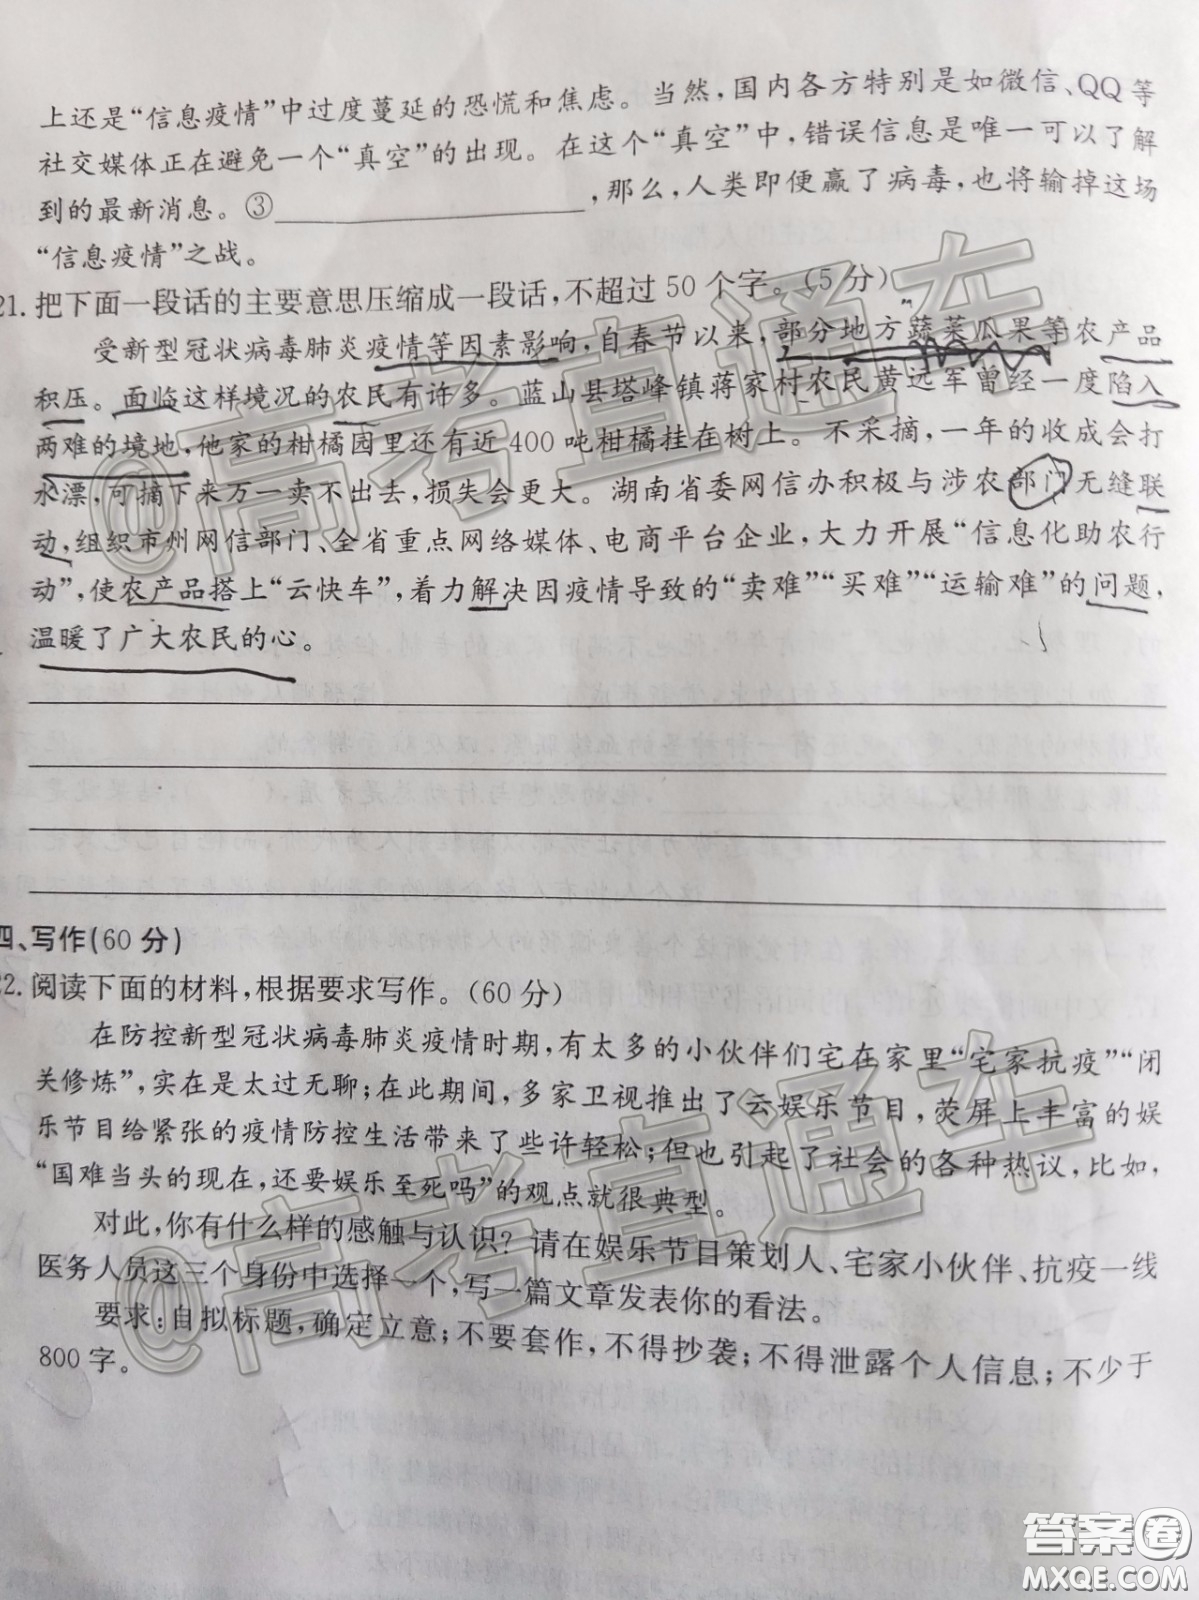 上还是“信息疫情”中过度蔓延的恐慌和焦虑。当然，国内各方特别是如微信、QQ等
社交媒体正在避免一个“真空”的出现。在这个“真空”中，错误信息是唯一可以了解
到的最新消息。③____________，那么，人类即便赢了病毒，也将输掉这场
“信息疫情”之战。
21. 把下面一段话的主要意思压缩成一段话，不超过50个字。（5分）
受新型冠状病毒肺炎疫情等因素影响，自春节以来，部分地方蔬菜瓜果等农产品
积压。面临这样境况的农民有许多。蓝山县塔峰镇蒋家村农民黄远军曾经一度陷入
两难的境地，他家的柑橘园里还有近400吨柑橘挂在树上。不采摘，一年的收成会打
水漂，可摘下来万一卖不出去，损失会更大。湖南省委网信办积极与涉农部门无缝联
动，组织市州网信部门、全省重点网络媒体、电商平台企业，大力开展“信息化助农行
动”，使农产品搭上“云快车”，着力解决因疫情导致的“卖难”“买难”“运输难”的问题，
温暖了广大农民的心。
四、写作（60分）
22. 阅读下面的材料，根据要求写作。（60分）
在防控新型冠状病毒肺炎疫情时期，有太多的小伙伴们宅在家里“宅家抗疫”“闭
关修炼”，实在是太过无聊；在此期间，多家卫视推出了云娱乐节目，荧屏上丰富的娱
乐节目给紧张的疫情防控生活带来了些许轻松；但也引起了社会的各种热议，比如，
“国难当头的现在，还要娱乐至死吗”的观点就很典型。
对此，你有什么样的感触与认识？请在娱乐节目策划人、宅家小伙伴、抗疫一线
医务人员这三个身份中选择一个，写一篇文章发表你的看法。
要求：自拟标题，确定立意；不要套作，不得抄袭；不得泄露个人信息；不少于
800字。
@高考直通车
@高考直通车
答案圈
MXQE.COM